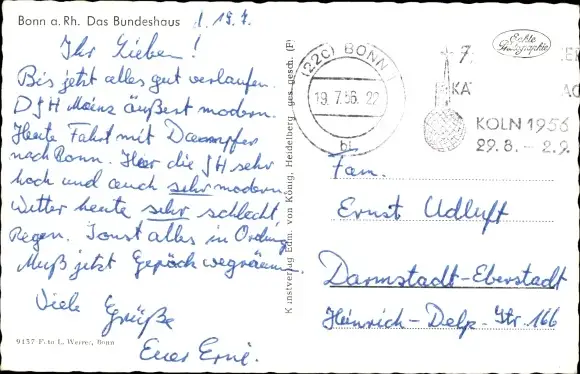 Bonn a. Rh. Das Bundeshaus
d. 19.7.
Ihr Lieben!
Bis jetzt alles gut verlaufen.
DJH Mainz äußerst modern.
Heute Fahrt mit Dampfer
nach Bonn. Hier die JH sehr
hoch und auch sehr modern.
Wetter heute sehr schlecht,
Regen. Sonst alles in Ordnung
Muß jetzt Gepäck wegräumen.
Viele
Grüße
Euer Erni.
9157 Foto L. Werner, Bonn
Kunstverlag Edm. von König, Heidelberg ges. gesch. (F)
Echte Photographie
(22c) BONN
19.7.56.22
7.
KÖLN 1956
29.8. – 2.9.
Fam.
Ernst Udluft
Darmstadt-Eberstadt
Heinrich-Delp-Str. 166